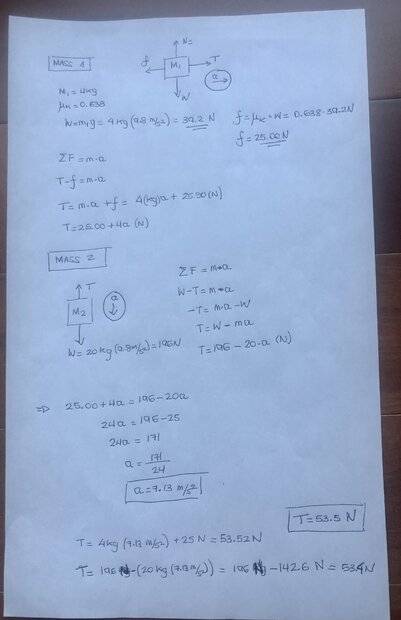 MASS 1
N=
f
M₁
T
a
W
M₁ = 4kg
μk = 0.638
W=m₁g = 4kg (9.8 m/s²) = 39.2 N
f=μk·W = 0.638·39.2N
f= 25.00 N
ΣF = m·a
T-f = m·a
T= m·a + f = 4(kg)a + 25.00 (N)
T= 25.00 + 4a (N)
MASS 2
T
M₂
a
W= 20kg (9.8m/s²) = 196N
ΣF = m·a
W-T= m·a
-T= m·a-W
T= W - ma
T= 196 - 20·a (N)
=D 25.00 + 4a = 196 - 20a
24a = 196-25
24a = 171
a = 171/24
a = 7.13 m/s²
T= 53.5 N
T= 4kg (7.13 m/s²) + 25 N = 53.52N
T= 196 N - (20 kg (7.13 m/s²)) = 196 N - 142.6 N = 53.4N